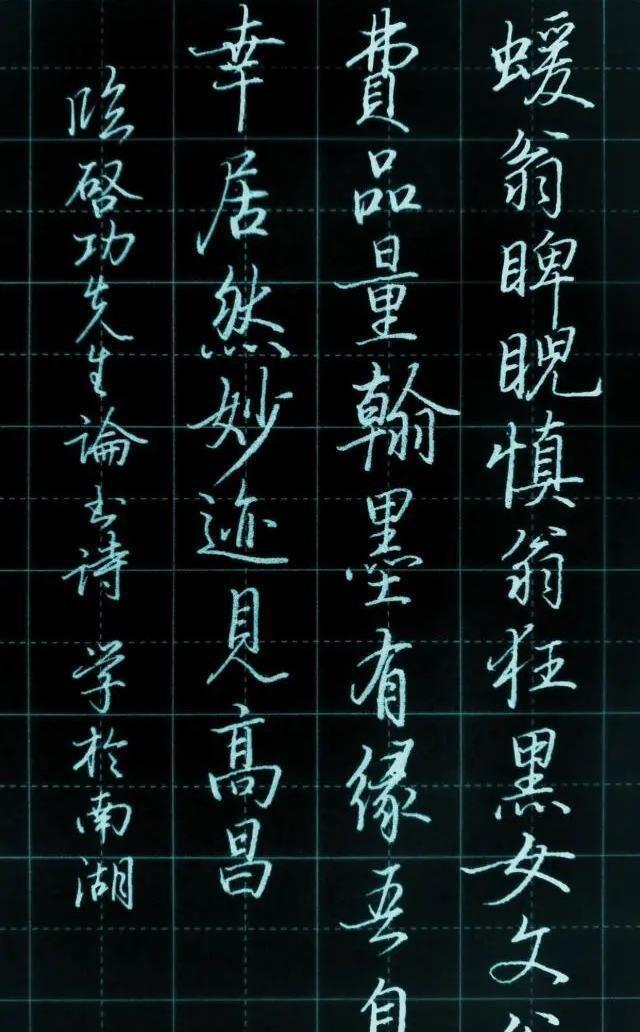 蝯翁睥睨慎翁狂黑女文
費品量翰墨有缘吾自
幸居然妙迹見高昌
臨啓功先生論书诗 学於南湖